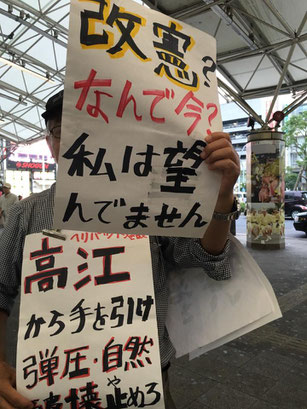 改憲?
なんで今?
私は望
んでません
ヘリパット
高江
から手を引け
弾圧・自然
破壊や止めろ